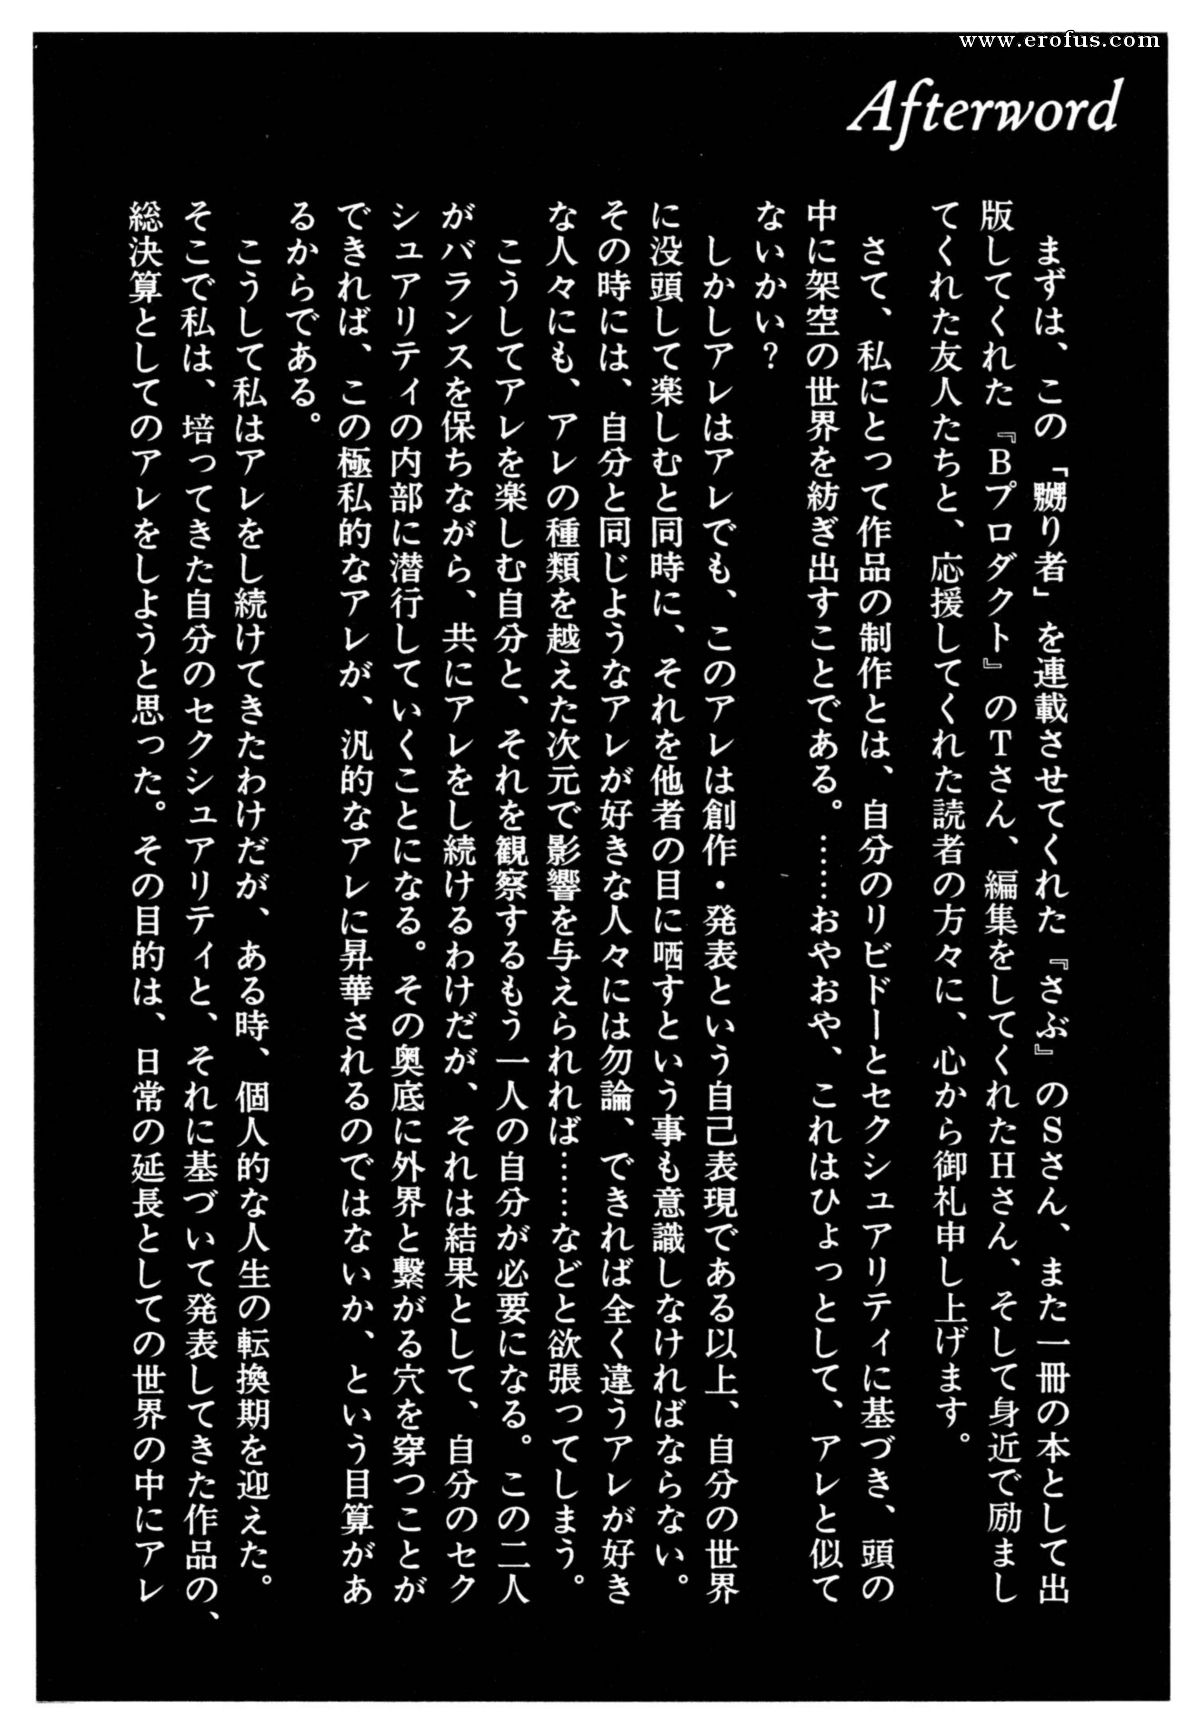 www.erofus.com
Afterword
まずは、この「嬲り者」を連載させてくれた『さぶ』のSさん、また一冊の本として出
版してくれた『Bプロダクト』のTさん、編集をしてくれたHさん、そして身近で励まし
てくれた友人たちと、応援してくれた読者の方々に、心から御礼申し上げます。
さて、私にとって作品の制作とは、自分のリビドーとセクシュアリティに基づき、頭の
中に架空の世界を紡ぎ出すことである。……おやおや、これはひょっとして、アレと似て
ないかい？
しかしアレはアレでも、このアレは創作・発表という自己表現である以上、自分の世界
に没頭して楽しむと同時に、それを他者の目に晒すという事も意識しなければならない。
その時には、自分と同じようなアレが好きな人々には勿論、できれば全く違うアレが好き
な人々にも、アレの種類を越えた次元で影響を与えられれば……などと欲張ってしまう。
こうしてアレを楽しむ自分と、それを観察するもう一人の自分が必要になる。この二人
がバランスを保ちながら、共にアレをし続けるわけだが、それは結果として、自分のセク
シュアリティの内部に潜行していくことになる。その奥底に外界と繋がる穴を穿つことが
できれば、この極私的なアレが、汎的なアレに昇華されるのではないか、という目算があ
るからである。
こうして私はアレをし続けてきたわけだが、ある時、個人的な人生の転換期を迎えた。
そこで私は、培ってきた自分のセクシュアリティと、それに基づいて発表してきた作品の、
総決算としてのアレをしようと思った。その目的は、日常の延長としての世界の中にアレ